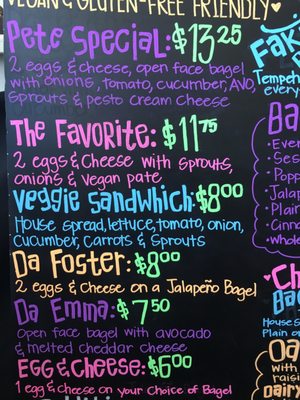 VEGAN & GLUTEN-FREE FRIENDLY
Pete Special: $13.25
2 eggs & cheese, open face bagel
with onions, tomato, cucumber, AVO,
Sprouts & pesto cream cheese
The Favorite: $11.75
2 eggs & Cheese with sprouts,
onions & vegan pate
Veggie Sandwhich: $8.00
House spread, lettuce, tomato, onion,
Cucumber, Carrots & Sprouts
Da Foster: $8.00
2 eggs & cheese on a Jalapeño Bagel
Da Emma: $7.50
open face bagel with avocado
& melted cheddar cheese
Egg & Cheese: $6.00
1 egg & cheese on your Choice of Bagel
Tempeh
every
Plain
House S
Plain o
with
raisi
Dairy